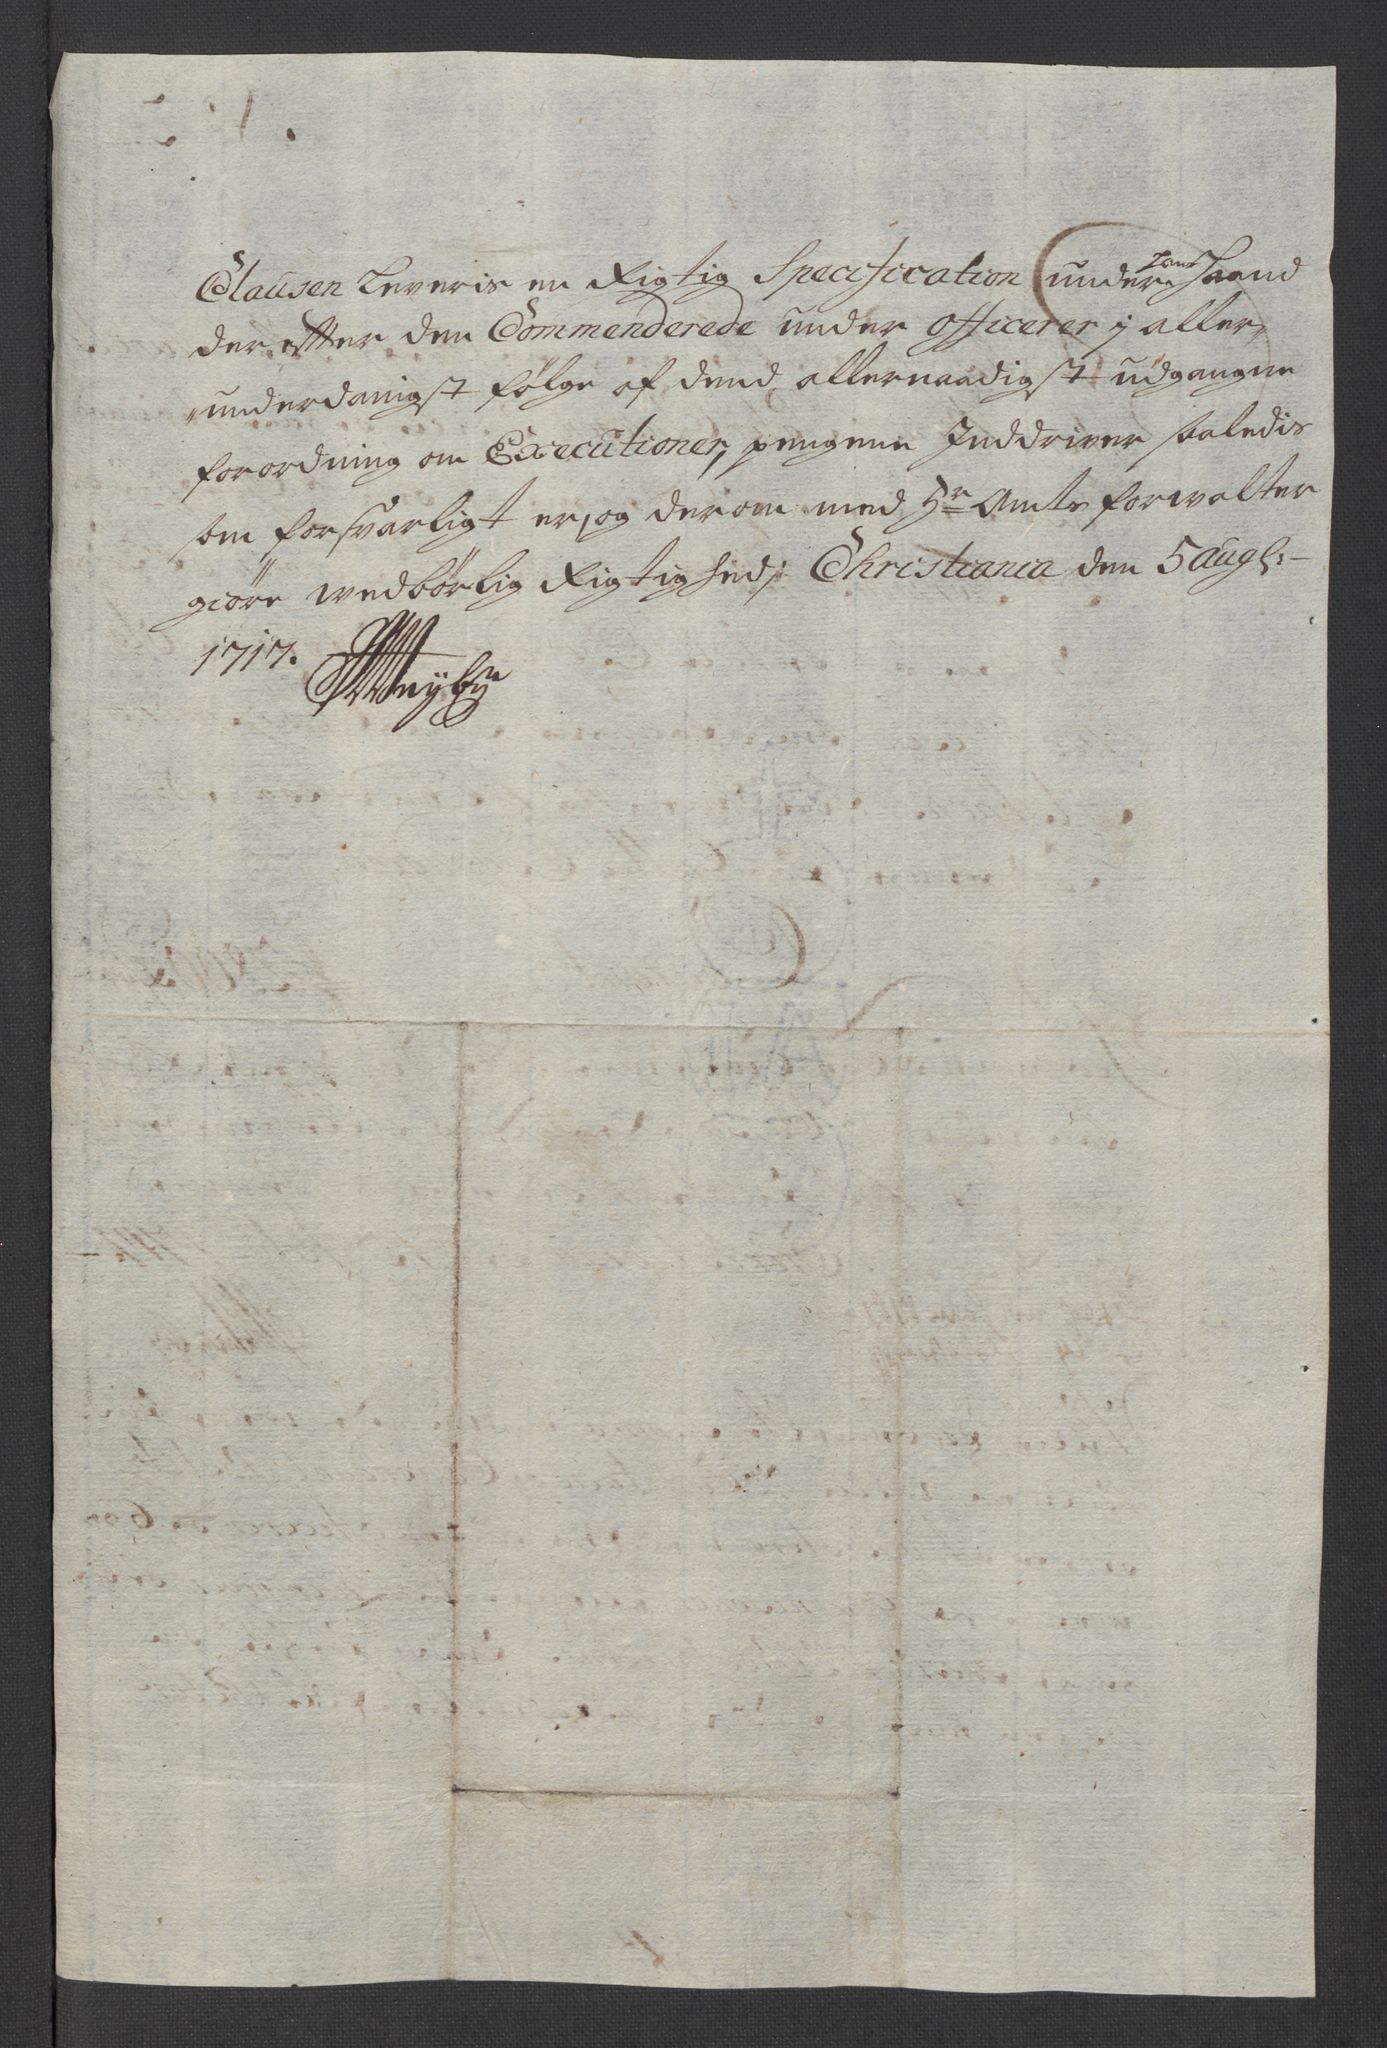 Clausen Leveris en Rigtig Specification under hans Haand
der efter den Commenderede under officerer j aller,,
,,underdanigst følge af dend allernaadigst udgangne
forordning om Executioner, pengene Inddriver saaledis
som forsvarligt er, og derom med Hr Amts forwalter
giøre wedbørlig Rigtighed; Christiania den 5 augs:
1717.